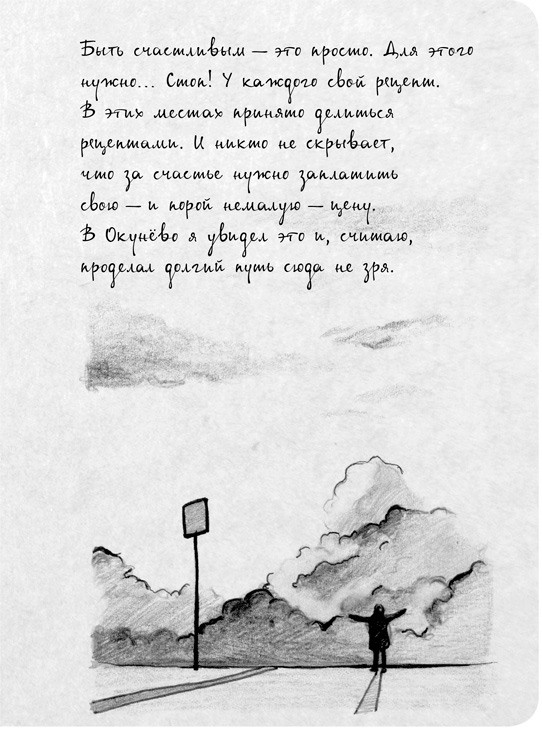 Быть счастливым — это просто. Для этого
нужно... Стоп! У каждого свой рецепт.
В этих местах принято делиться
рецептами. И никто не скрывает,
что за счастье нужно заплатить
свою — и порой немалую — цену.
В Окунёво я увидел это и, считаю,
проделал долгий путь сюда не зря.